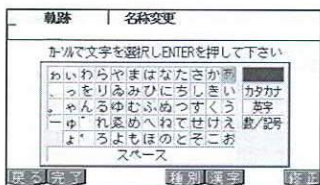 軌跡 名称変更
カーソルで文字を選択しENTERを押して下さい
ゎぃわらやまはなたさかあ
っをりゐみひにちしきい カタカナ
ゃんるゆむふぬつすくう 英字
ーゅ゛れゑめへねてせけえ 数/記号
ょ゜ろよもほのとそこお
スペース
戻る 完了 種別 漢字 修正